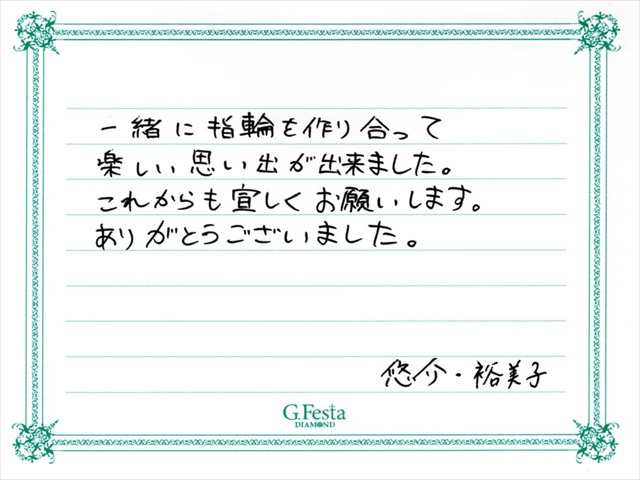 一緒に指輪を作り合って
楽しい思い出が出来ました。
これからも宜しくお願いします。
ありがとうございました。
悠介・裕美子
G.Festa
DIAMOND